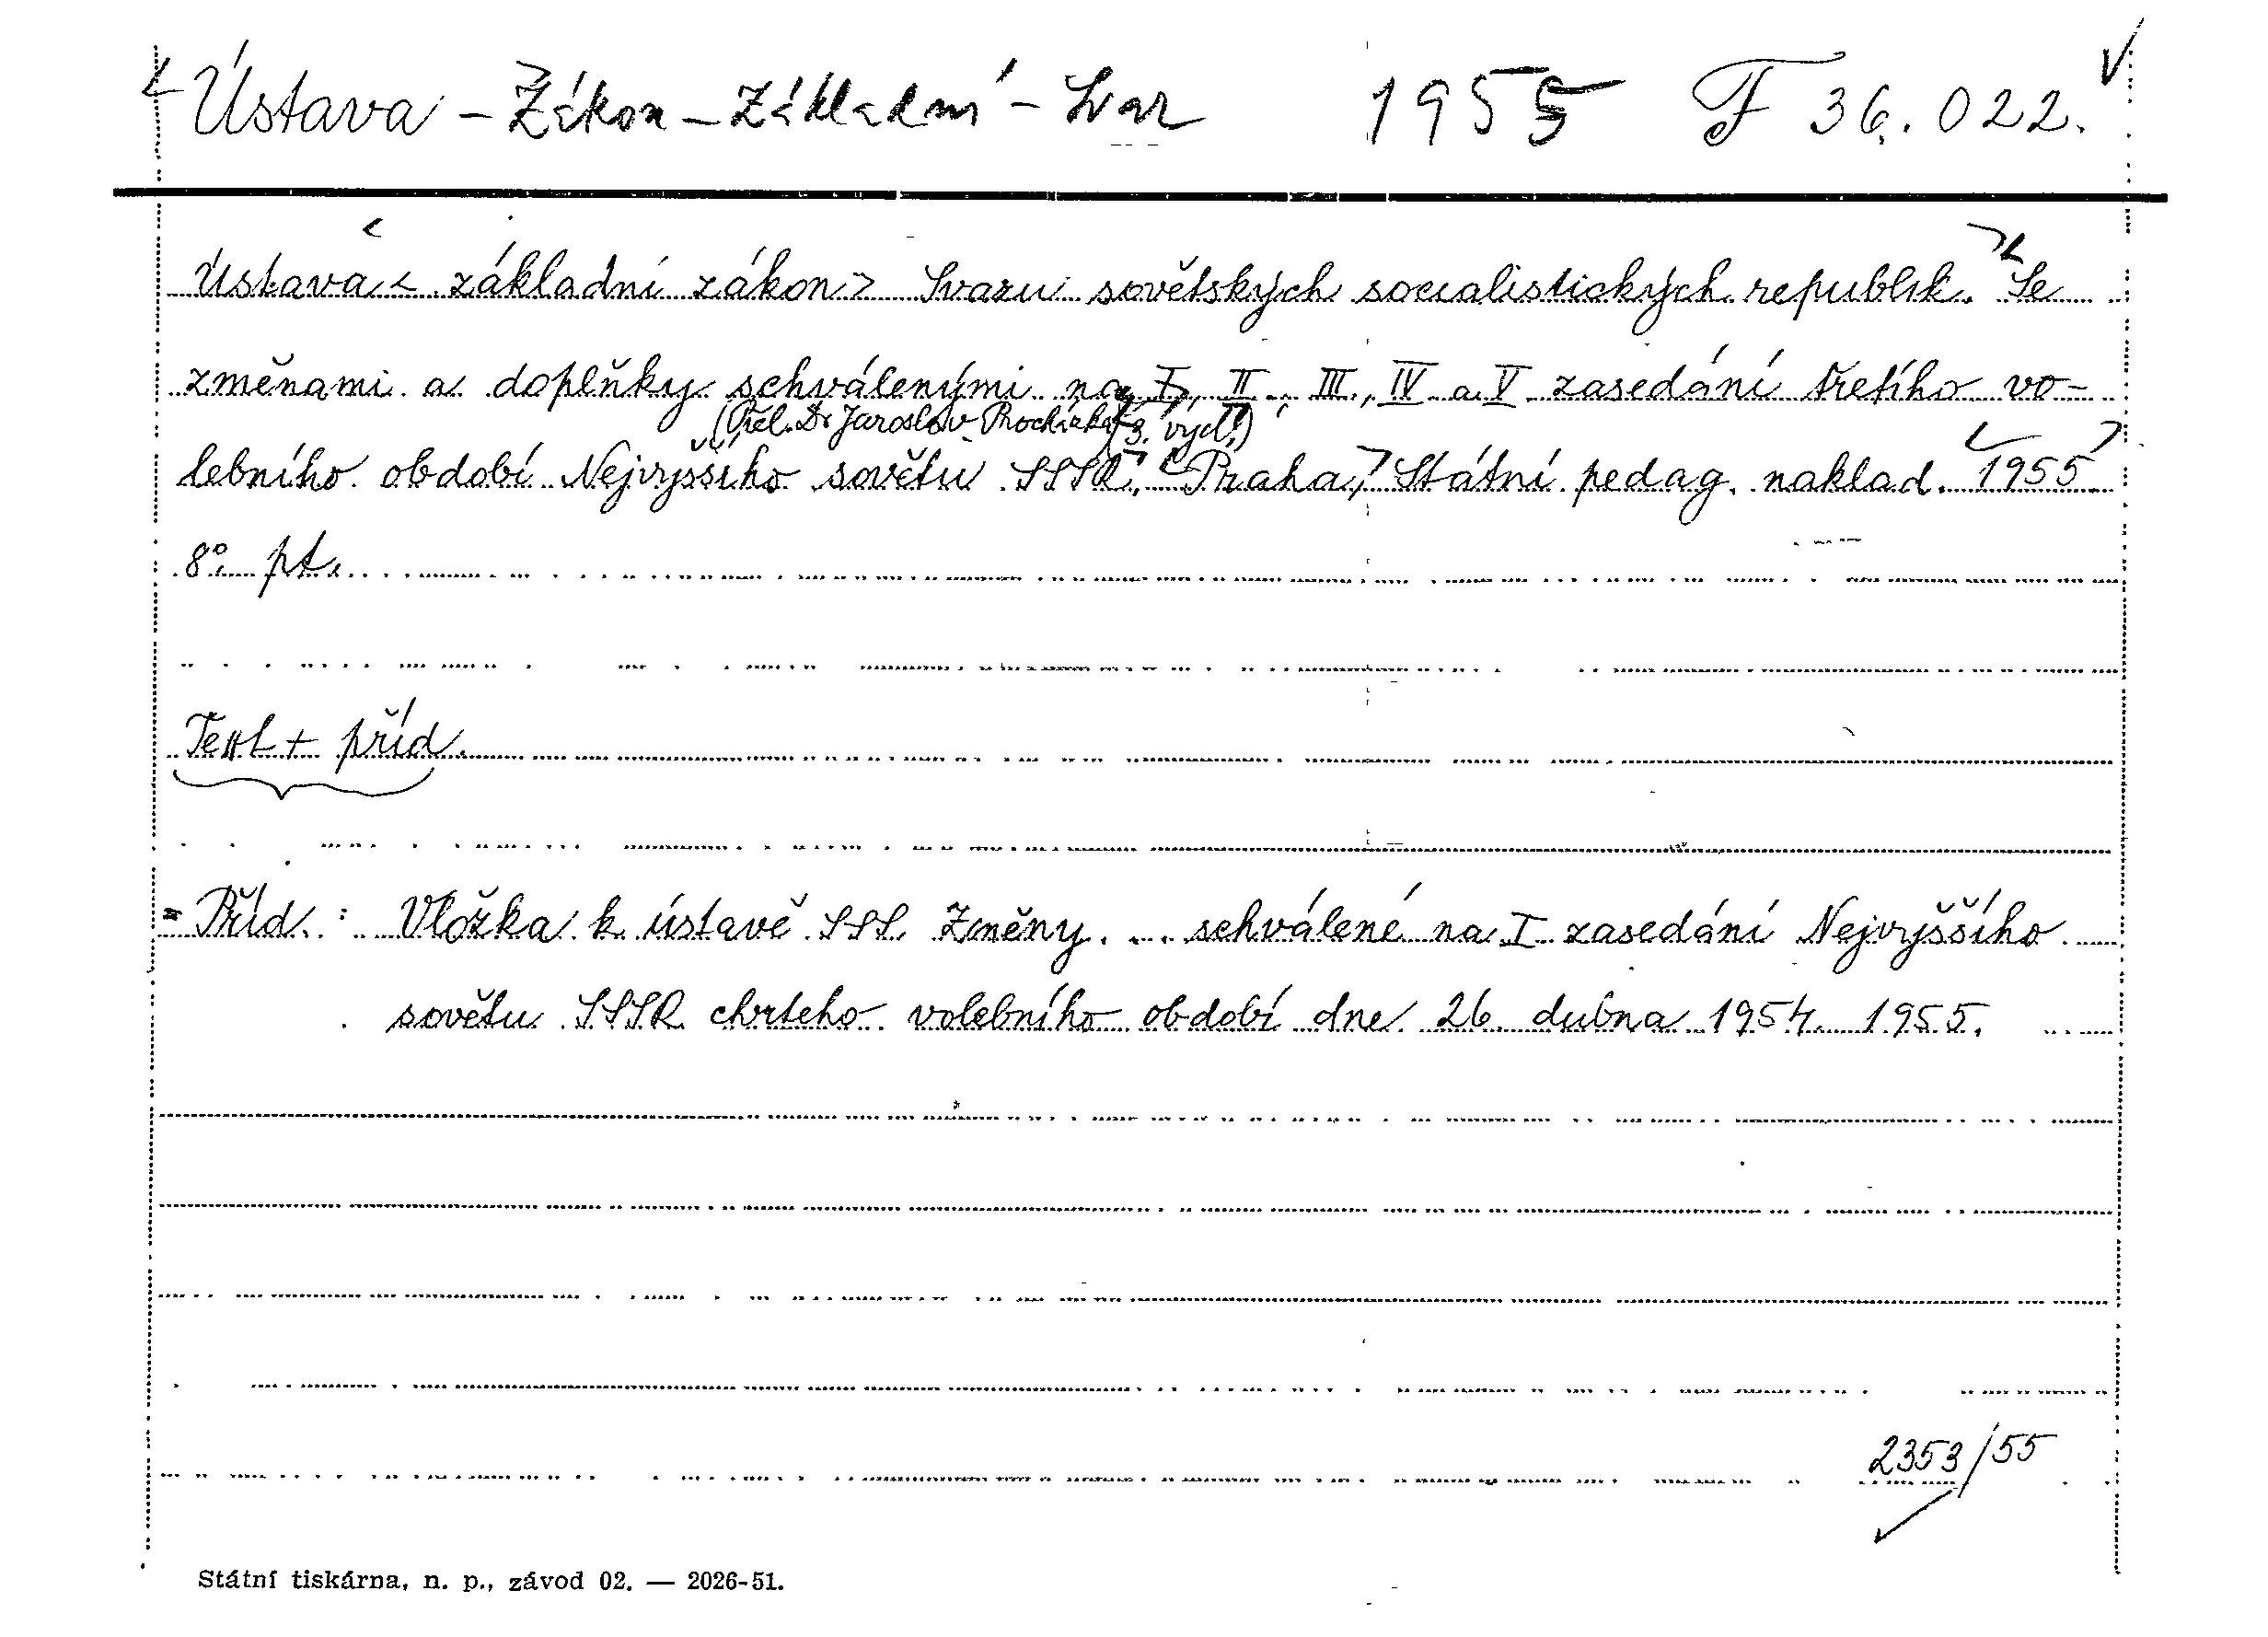 Ústava – Zákon – Základní – Svaz 1955 F 36.022.
Ústava < základní zákon > Svazu sovětských socialistických republik. Se
změnami a doplňky schválenými na I., II., III., IV a V zasedání třetího vo-
(Přel. Dr Jaroslav Procházka, 3. vyd.)
lebního období Nejvyššího sovětu SSSR, Praha, Státní pedag. naklad. 1955
8° pt.
Text + příd.
= Příd.: Vložka k ústavě SSS. Změny... schválené na I zasedání Nejvyššího
sovětu SSSR chrteho volebního období dne 26 dubna 1954. 1955.
2353/55
Státní tiskárna, n. p., závod 02. — 2026-51.